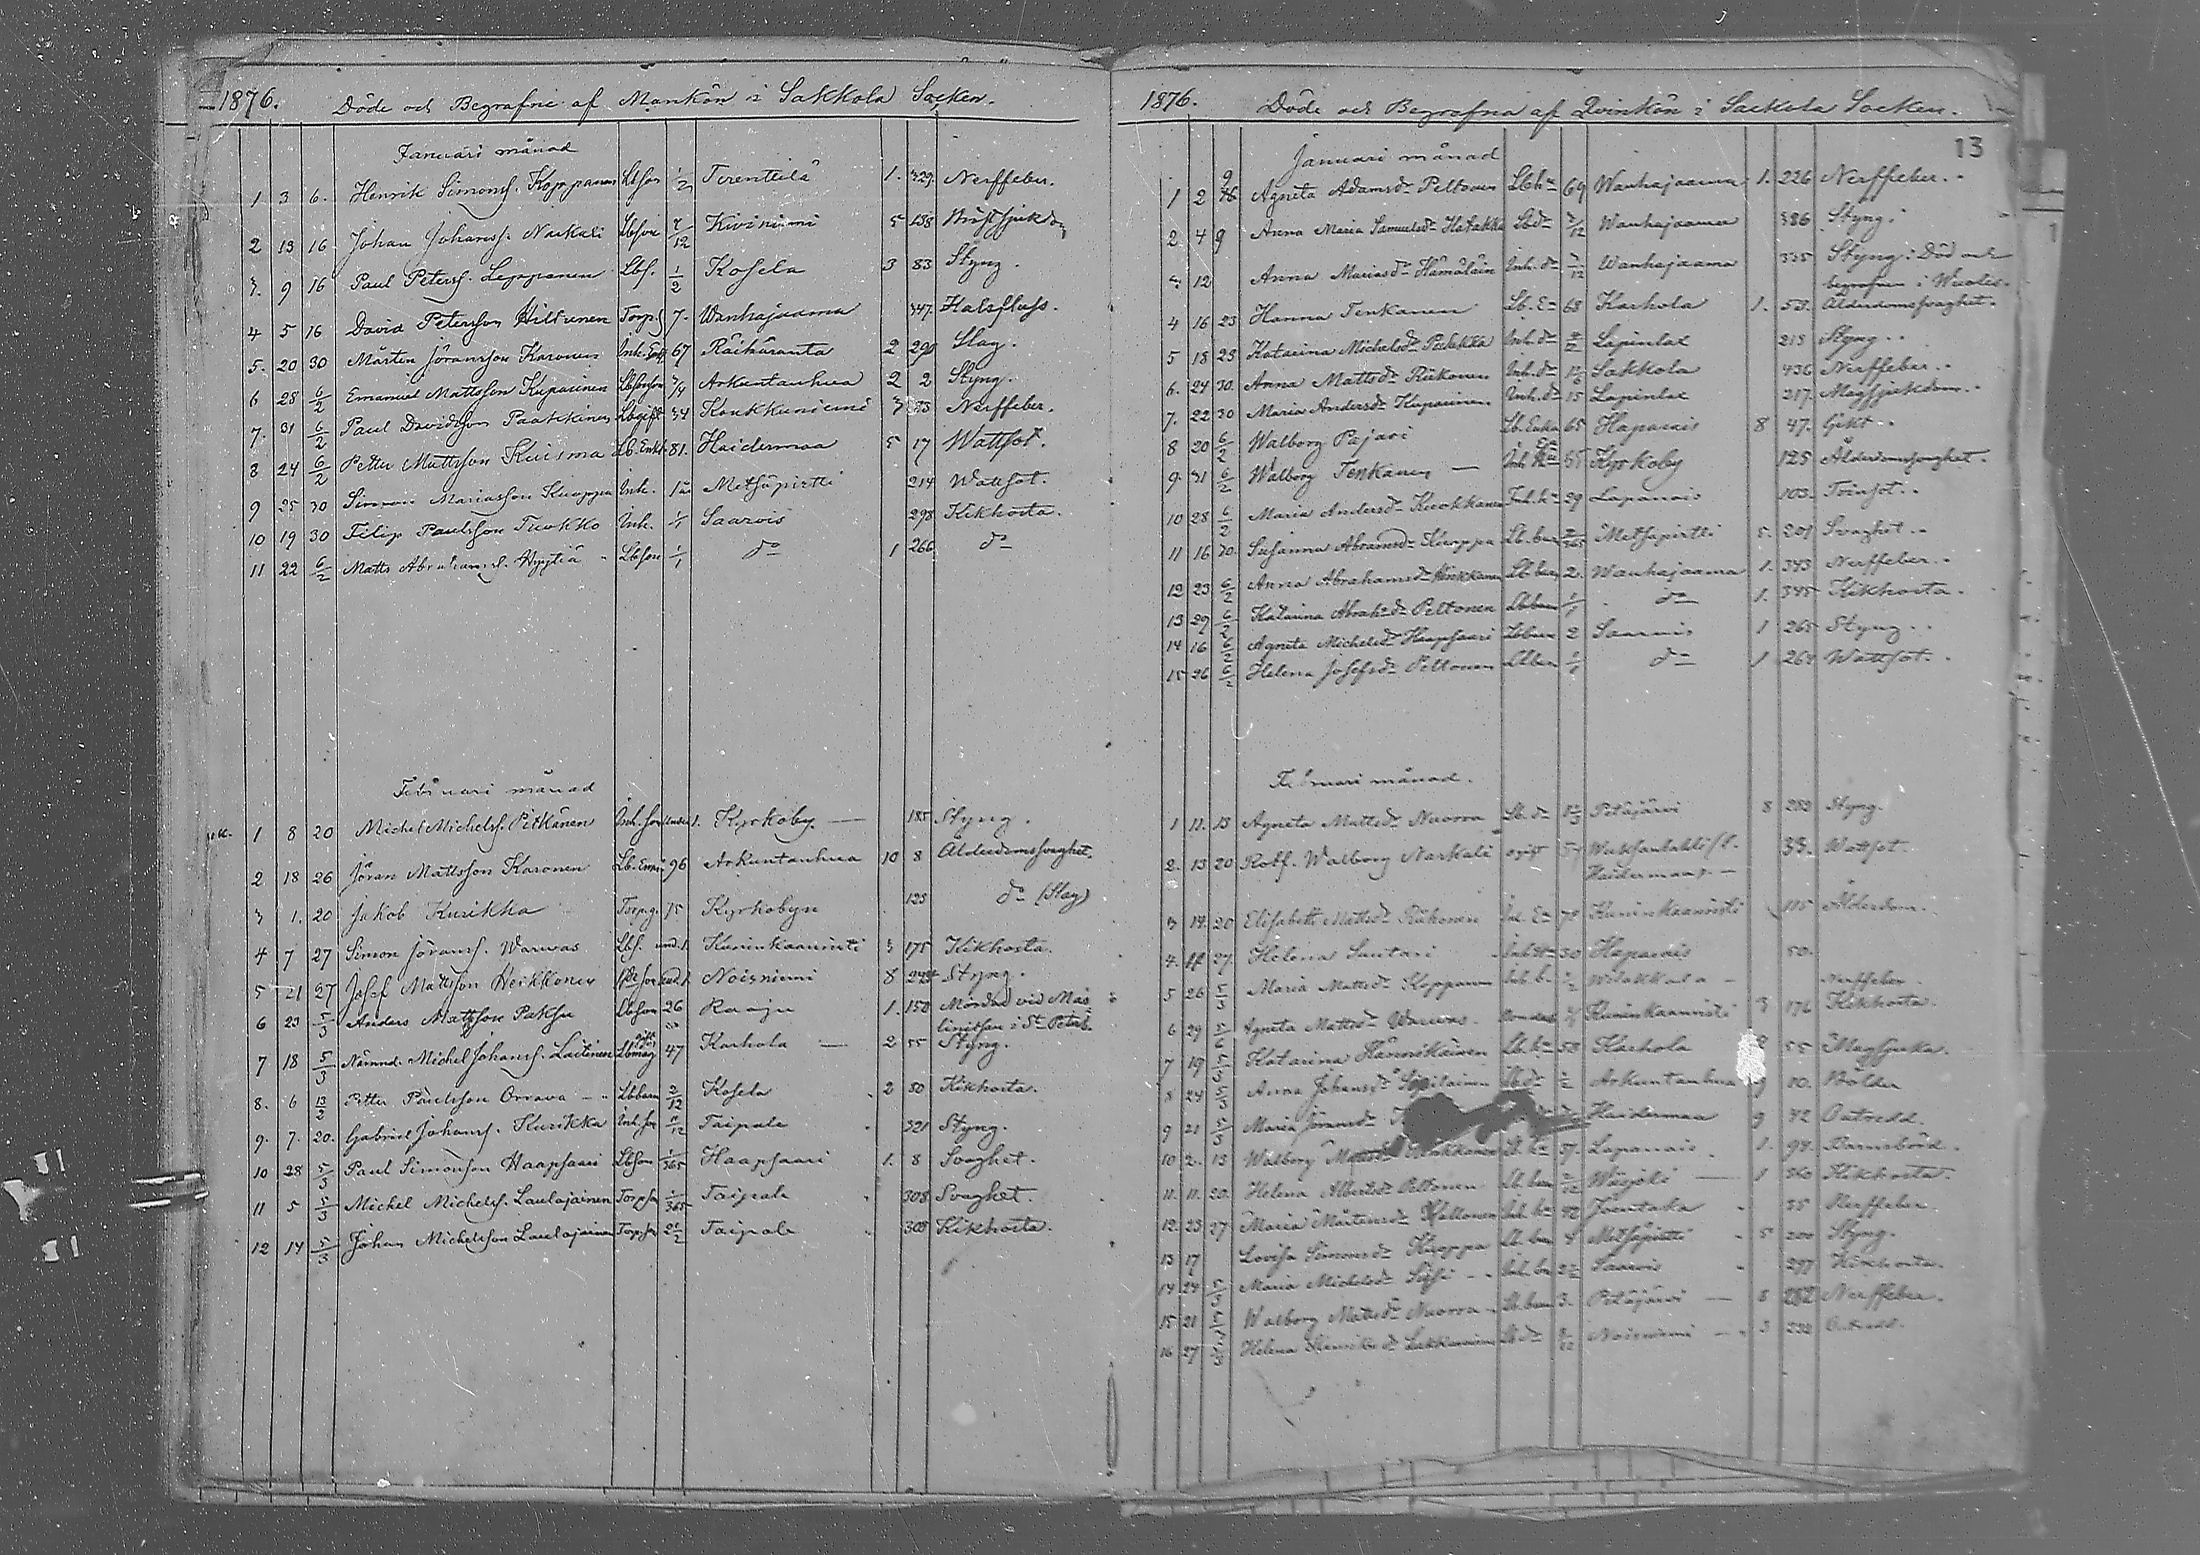 1876. Döde och Begrafne af Mankön i Sakkola Socken.
Januari månad
1 3 6. Henrik Simonss. Koppanen Lbson 1/2 Terenttilä 1. 329. Nerffeber.
2 13 16 Johan Johanss. Naskali Lbson 7/12 Kiviniemi 5 138 Bröstsjukdom
3. 9 16 Paul Peterss. Leppänen Lbs. 1/2 Kosela 3 83 Styng.
4 5 16 David Petersson Hiltunen Torp.s 7. Wanhajaama 347. Halsfluss.
5. 20 30 Mårten Jöransson Karonen Inh. Enkl. 67 Räihäranta 2 290 Slag.
6 28 6/2 Emanuel Mattsson Kuparinen Lbsonson 3/4 Arkuntanhua 2 2 Styng.
7. 31 6/2 Paul Davidsson Paakkinen Lb gift 34 Konkkuniemi 3 Nerffeber.
8 24 6/2 Petter Mattsson Kuisma Lb. Enkl. 81. Haidermaa 5 17 Wattsot.
9 25 30 Simon Mariasson Kuoppa Inh. Metsäpirtti 214 Wattsot.
10 19 30 Filip Paulsson Tuokko Inh. 1/1 Saarois 298 Kikhosta.
11 22 6/2 Matts Abrahamss. Hyytiä Lbson 1/1 do 1 266 do
Februari månad
1 8 20 Michel Michelss. Pitkänen Inh. son under 1. Kyrkoby 185 Styng.
2 18 26 Jöran Mattsson Karonen Lb. Enkl 96 Arkuntanhua 10 8 Ålderdomssvaghet.
3 1. 20 Jakob Kurikka Torpg. 75 Kyrkobyn 123 do (Slag)
4 7 27 Simon Jöranss. Warwas Lbs. und. 1. Kuninkaanristi 3 175 Kikhosta.
5 21 27 Josef Mattsson Heikkonen und 1. Noisniemi 8 Styng.
6 23 5/3 Anders Mattsson Paksu Lbson 26 Raaju 1. 150 Mördad vid Mas
linitsan i St. Petersb.
7 18 5/3 Nämnd. Michel Johanss. Laitinen Lb måg 47 Karhola 2 55 Styng.
8. 6 13/2 Petter Paulsson Orrava Lbbarn 2/12 Kosela 2 80 Kikhosta.
9. 7. 20. Gabriel Johanss. Kurikka Inh. son 11/12 Taipale 321 Styng.
10 28 5/3 Paul Simonsson Haapsaari Lbson 1/365 Haapsaari 1. 8 Svaghet.
11 5 5/3 Michel Michelss. Laulajainen Torpson 1/365 Taipale 308 Svaghet.
12 14 5/3 Johan Michelsson Laulajainen Torpson 2 1/2 Taipale 308 Kikhosta.
1876. Döde och Begrafna af Qvinkön i Sakkola Socken.
13
Januari månad
1 2 9 Agneta Adamsdr Peltonen Lbh 69 Wanhajaama 1. 226 Nerffeber.
2 4 9 Anna Maria Samuelsdr Hatakka Lbdr 7/12 Wanhajaama 386 Styng.
3 12 Anna Mariasdr Hämäläinen Inh. dr 7/12 Wanhajaama 335 Styng: Död och
begrafven i Wuoles.
4 16 23 Hanna Tenkanen Lb. E 68 Karhola 1. 53. Ålderdomssvaghet.
5 18 23 Katarina Michelsdr Pukkka Inh. dr Lapinlae 213 Styng.
6. 24 30. Anna Mattsdr Riikonen Inh. dr Sakkola 436 Nerffeber.
7. 22 30 Maria Andersdr Kuparinen Inh. dr 15 Lapinlae 217. Magsjukdom.
8 20 6/2 Walborg Pajari Lb. Enka 65 Haparais 8 47. Gikt.
9. 31 6/2 Walborg Tenkanen Inh. Kyrkoby 125 Ålderdomssvaghet.
10 28 6/2 Maria Andersdr Kuokkanen Inh. h 29 Lapanais 103. Tvinsot.
11 16 30. Susanna Abramsdr Kuoppa Lb. barn Metsäpirtti 5. 201 Svaghet.
12 23 6/2 Anna Abrahamsdr Heikkanen Lb barn 2. Wanhajaama 1. 343 Nerffeber.
13 29 6/2 Katarina Abrah. dr Peltonen Lbbarn 1/1 do 1. 345 Kikhosta.
14 16 6/2 Agneta Michelsdr Haapsaari Lbbarn 2 Saarois 1 265 Styng.
15 26 6/2 Helena Josefsdr Peltonen Lbbarn 1/1 do 1 264 Wattsot.
Februari månad.
1 11. 13 Agneta Mattsdr Nuora Lb. dr Petäjärvi 8 282 Styng.
2. 13 20 Rotf. Walborg Naskali ogift 54 33. Wattsot.
Haidermaas.
3 14. 20 Elisabeth Mattsdr Riikonen 78 Kuninkaanristi 115 Ålderdom.
4. 27. Helena Suutari 30 Haparais 50.
5 26 5/3 Maria Mattsdr Koppanen Inh. b. 1/2 Wilakkala Nerffeber.
6 29 5/3 Agneta Mattsdr Warwas Kuninkaanristi 3 176 Kikhosta.
7 19 5/3 Katarina Hännikäinen 58 Karhola 2 55 Magsjuka.
8 24 5/3 Anna Johansdr Lb dr Arkuntanhua 9 10. Bölder
9 21 5/3 Maria Jöransdr Haidermaa 9 72 Outredd.
10 2. 13 Walborg 37. Lapanais. 1. 94. Barnsbörd.
11. 11. 20. Helena Albertsdr Peltonen Lb. barn Wiisjoki 1 360 Kikhosta.
12. 23 27 Maria Mårtensdr Peltonen 42 Joentaka 35 Nerffeber.
13 17 Lovisa Simonsdr Kuoppa Lb. barn 4 Metsäpirtti 5 200 Styng.
14 24 5/3 Maria Michelsdr Susi Inh. barn Saarois 297 Kikhosta.
15 21 5/3 Walborg Mattsdr Nuora Lb. barn 3. Petäjärvi 8 282 Nerffeber.
16 27 5/3 Helena Henriksdr Lb dr Noisniemi 3 232 Outredd.